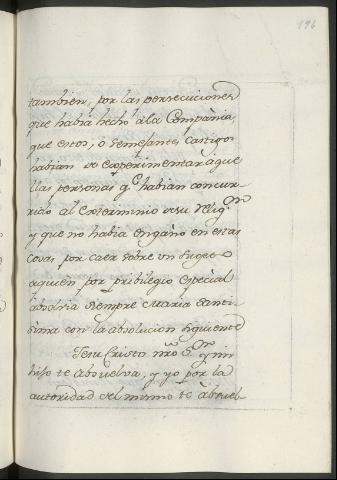 196
tambien, por las persecuciones
que habia hecho à la Compania,
que estos, ò semejantes castigos
habian de experimentar aque
llas personas q.e habian concur-
rido al exterminio de su Relig.on
y que no habia engaño en estas
cosas por caer sobre un sugeto
aquien por pribilegio especial
absolvia siempre Maria Santi
sima con la absolucion siguiente
Jesu Cristo nrõ S.or y mi
hijo te absuelva, y yo por la
autoridad del mismo te absuel-